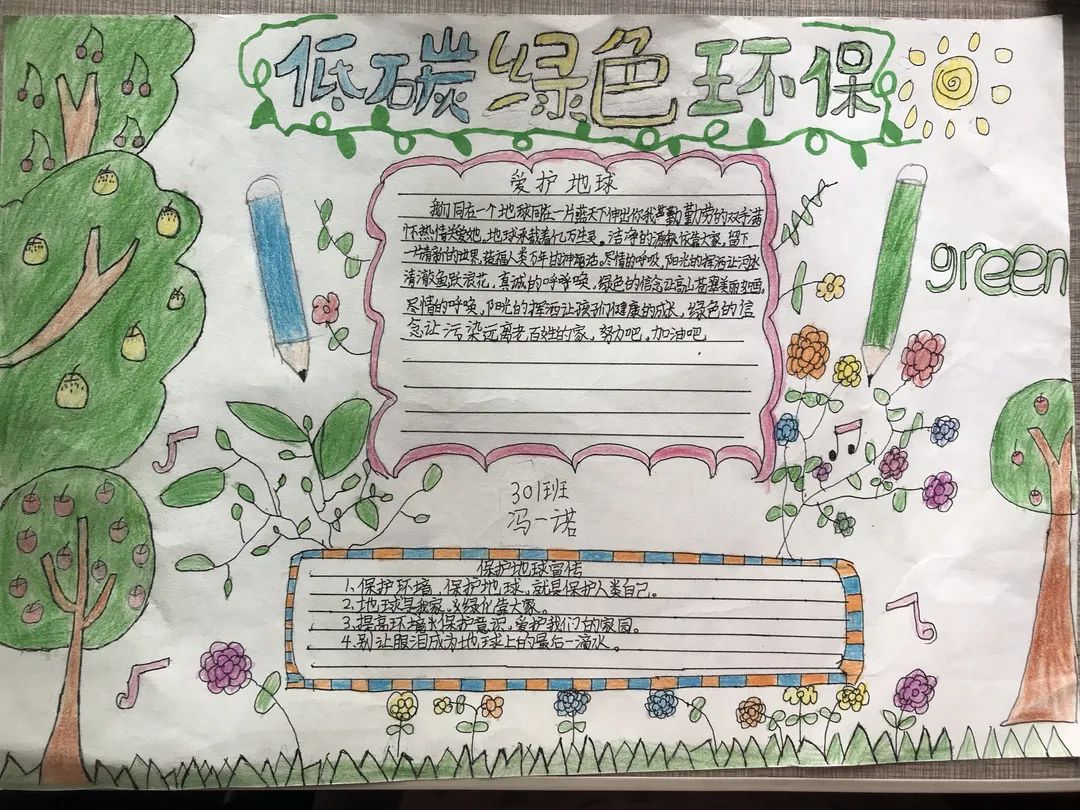 低碳绿色环保
爱护地球
我们同在一个地球同在一片蓝天下伸出你我勤勤劳的双手满
怀热情关爱她，地球承载着亿万生灵。洁净的源泉依靠大家，留下
一片清新的世界，造福人类万年的神話，尽情的呼吸，阳光的挥洒让河水
清澈鱼跃浪花，真诚的呼呼唤，绿色的信念让高山苍翠美丽如画，
尽情的呼唤，阳光的挥洒让孩子们健康的成长，绿色的信
念让污染远离老百姓的家，努力吧，加油吧
green
301班
冯一诺
保护地球宣传
1、保护环境，保护地球，就是保护人类自己。
2、地球是我家，绿化靠大家。
3、提高环境保护意识，爱护我们的家园。
4、别让眼泪成为地球上的最后一滴水。